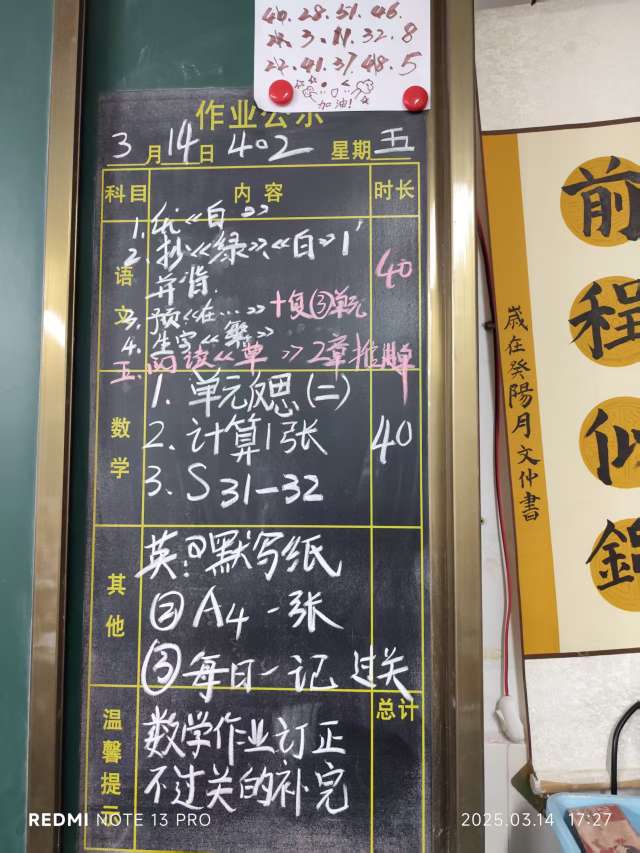 40. 28. 51. 46.
3. 11. 32. 8
22. 41. 37. 48. 5
加油!
作业公示
3月14日 402 星期五
科目 内容 时长
语文
1. 《白》
2. 抄《绿》、《白》1'
并背.
3. 预《在…》+复③单元
4. 生字《繁》
五. 阅读《单》2章
40
数学
1. 单元反思(二)
2. 计算1张
3. S 31-32
40
其他
英:①默写纸
②A4一张
③每日一记 过关
温馨提示
数学作业订正
不过关的补完
总计
前程似锦
岁在癸陽月文仲書
REDMI NOTE 13 PRO
2025.03.14 17:27